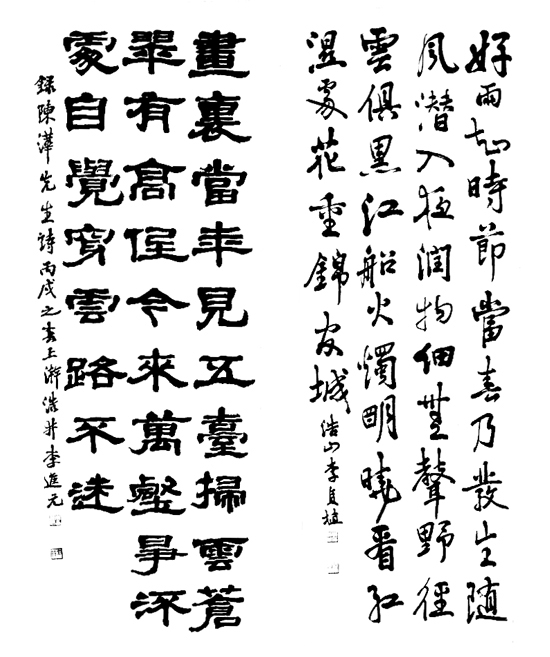 好雨知時節當春乃發生隨
風潛入夜潤物細無聲野徑
雲俱黑江船火燭明曉看紅
濕處花重錦官城
浩山李
畫裏當年見五臺掃雲蒼
翠有高低今來萬壑爭流
處自覺穿雲路不迷
錄陳澕先生詩丙戌之春上澣 井李進元